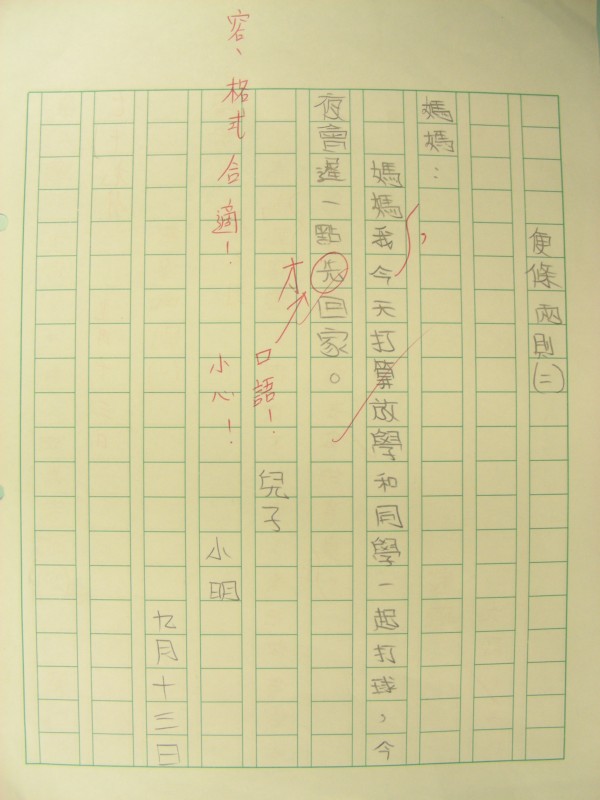 便條兩則(二)
媽媽：
媽媽我今天打算放學和同學一起打球，今
，
夜會遲一點先回家。
才
口語！
兒子
小明
容、格式合適！
小心！
九月十三日